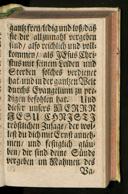 gantz frey/ ledig und loß/ daß
sie die allzumahl vergeben
sind/ also reichlich und voll-
kommen/ als JEsus Chri-
stus mit seinem Leiden und
Sterben solches verdienet
hat/ und in der gantzen Welt
durchs Evangelium zu pre-
digen befohlen hat. Und
dieser unsers HERRN
JESU CHRISTI
tröstlichen Zusage/ der wol-
lest du dich mit Ernst anneh-
men/ und festiglich gläu-
ben/ dir sind deine Sünde
vergeben im Nahmen des
Va/